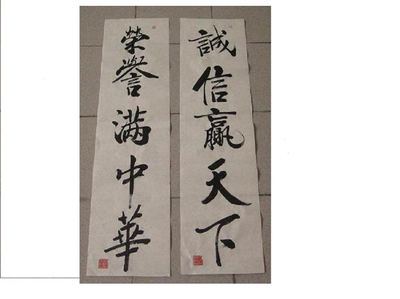 誠信贏天下
榮譽滿中華